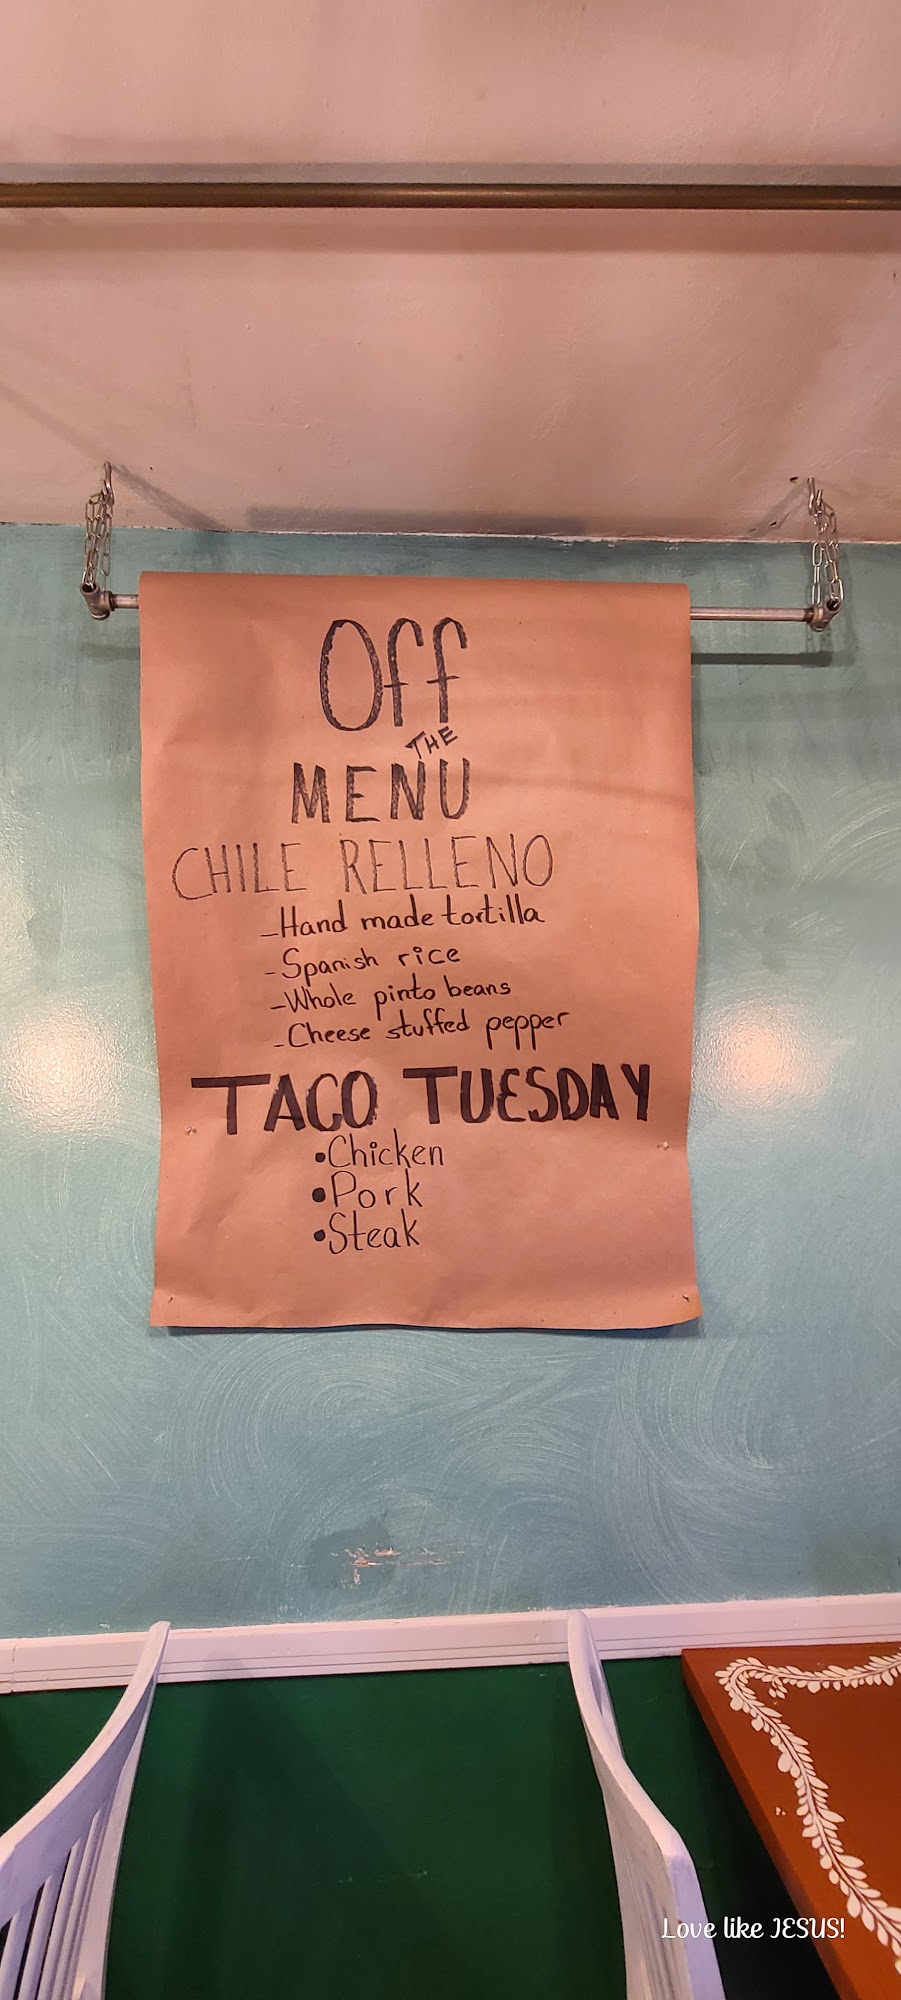 Off
THE
MENU
CHILE RELLENO
-Hand made tortilla
-Spanish rice
-Whole pinto beans
-Cheese stuffed pepper
TACO TUESDAY
•Chicken
•Pork
•Steak
Love like JESUS!